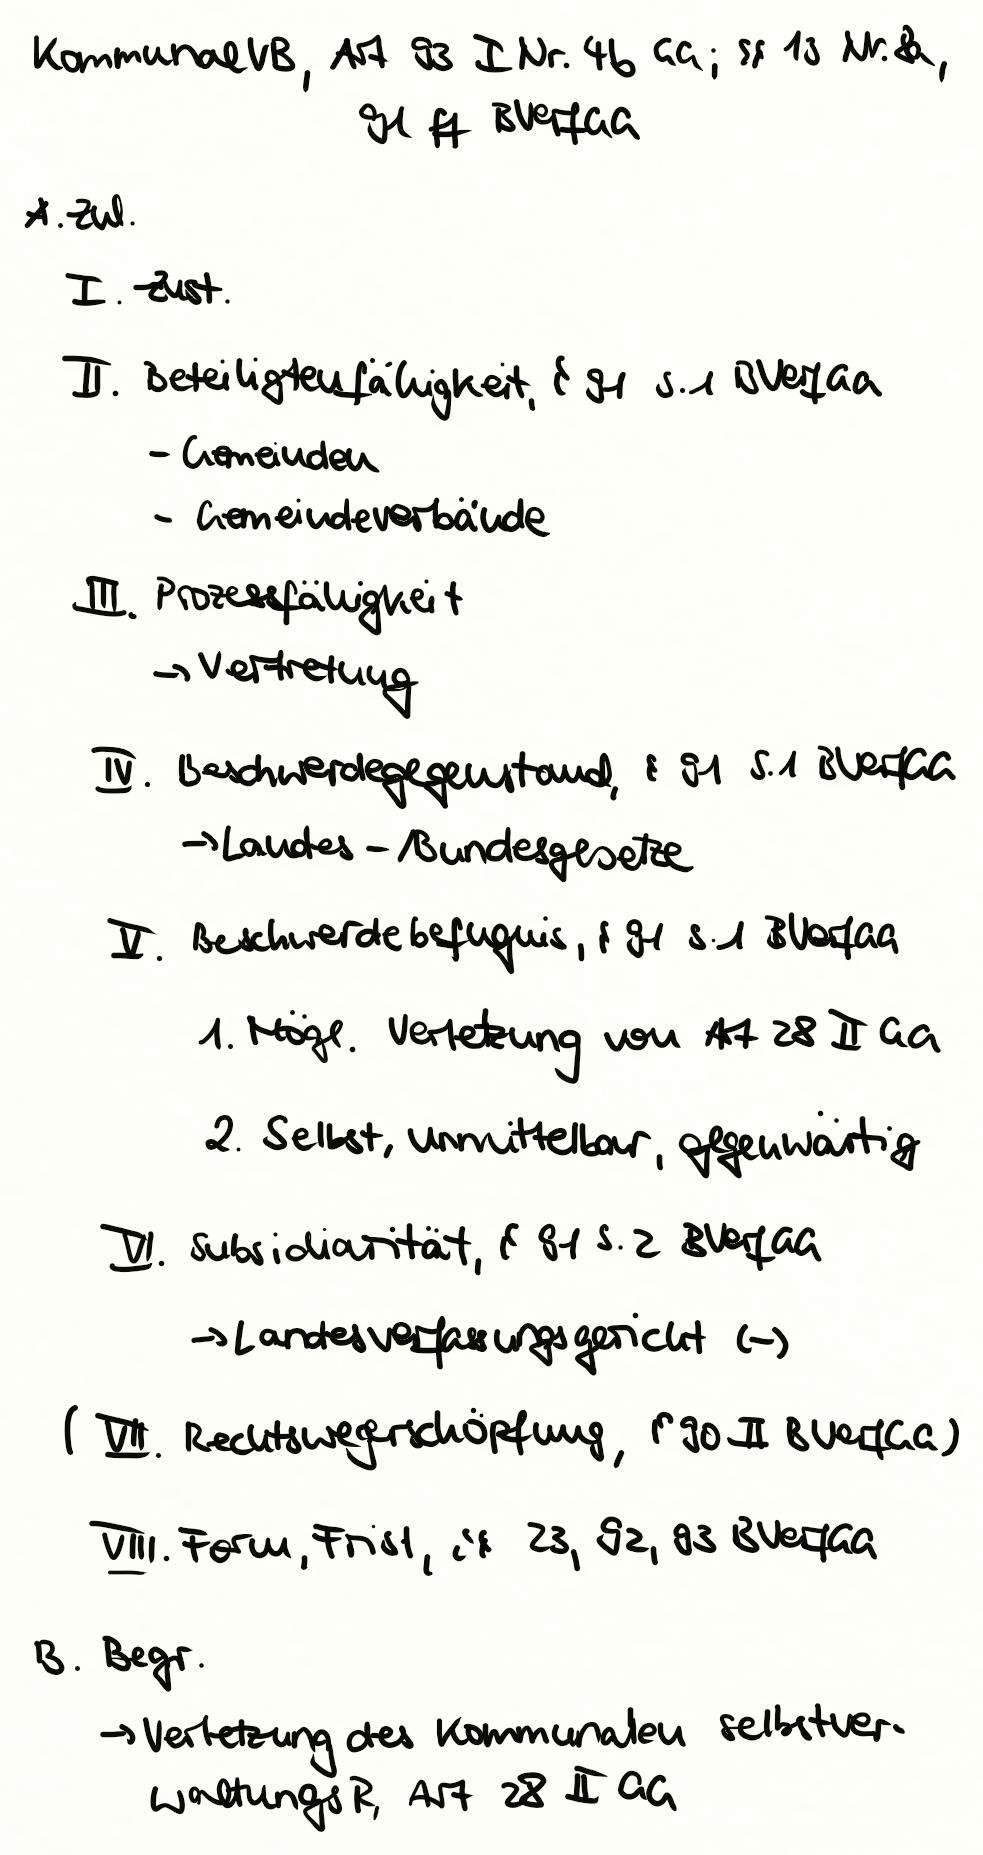 KommunalVB, Art 93 I Nr. 4b GG; §§ 13 Nr. 8a,
91 ff BVerfGG
A. Zul.
I. Zust.
II. Beteiligtenfähigkeit, § 91 S.1 BVerfGG
- Gemeinden
- Gemeindeverbände
III. Prozessfähigkeit
→ Vertretung
IV. Beschwerdegegenstand, § 91 S.1 BVerfGG
→ Landes-/Bundesgesetze
V. Beschwerdebefugnis, § 91 S.1 BVerfGG
1. Mögl. Verletzung von Art 28 II GG
2. Selbst, unmittelbar, gegenwärtig
VI. Subsidiarität, § 91 S.2 BVerfGG
→ Landesverfassungsgericht (-)
(VII. Rechtswegerschöpfung, § 90 II BVerfGG)
VIII. Form, Frist, §§ 23, 92, 93 BVerfGG
B. Begr.
→ Verletzung des Kommunalen Selbstver-
waltungsR, Art 28 II GG